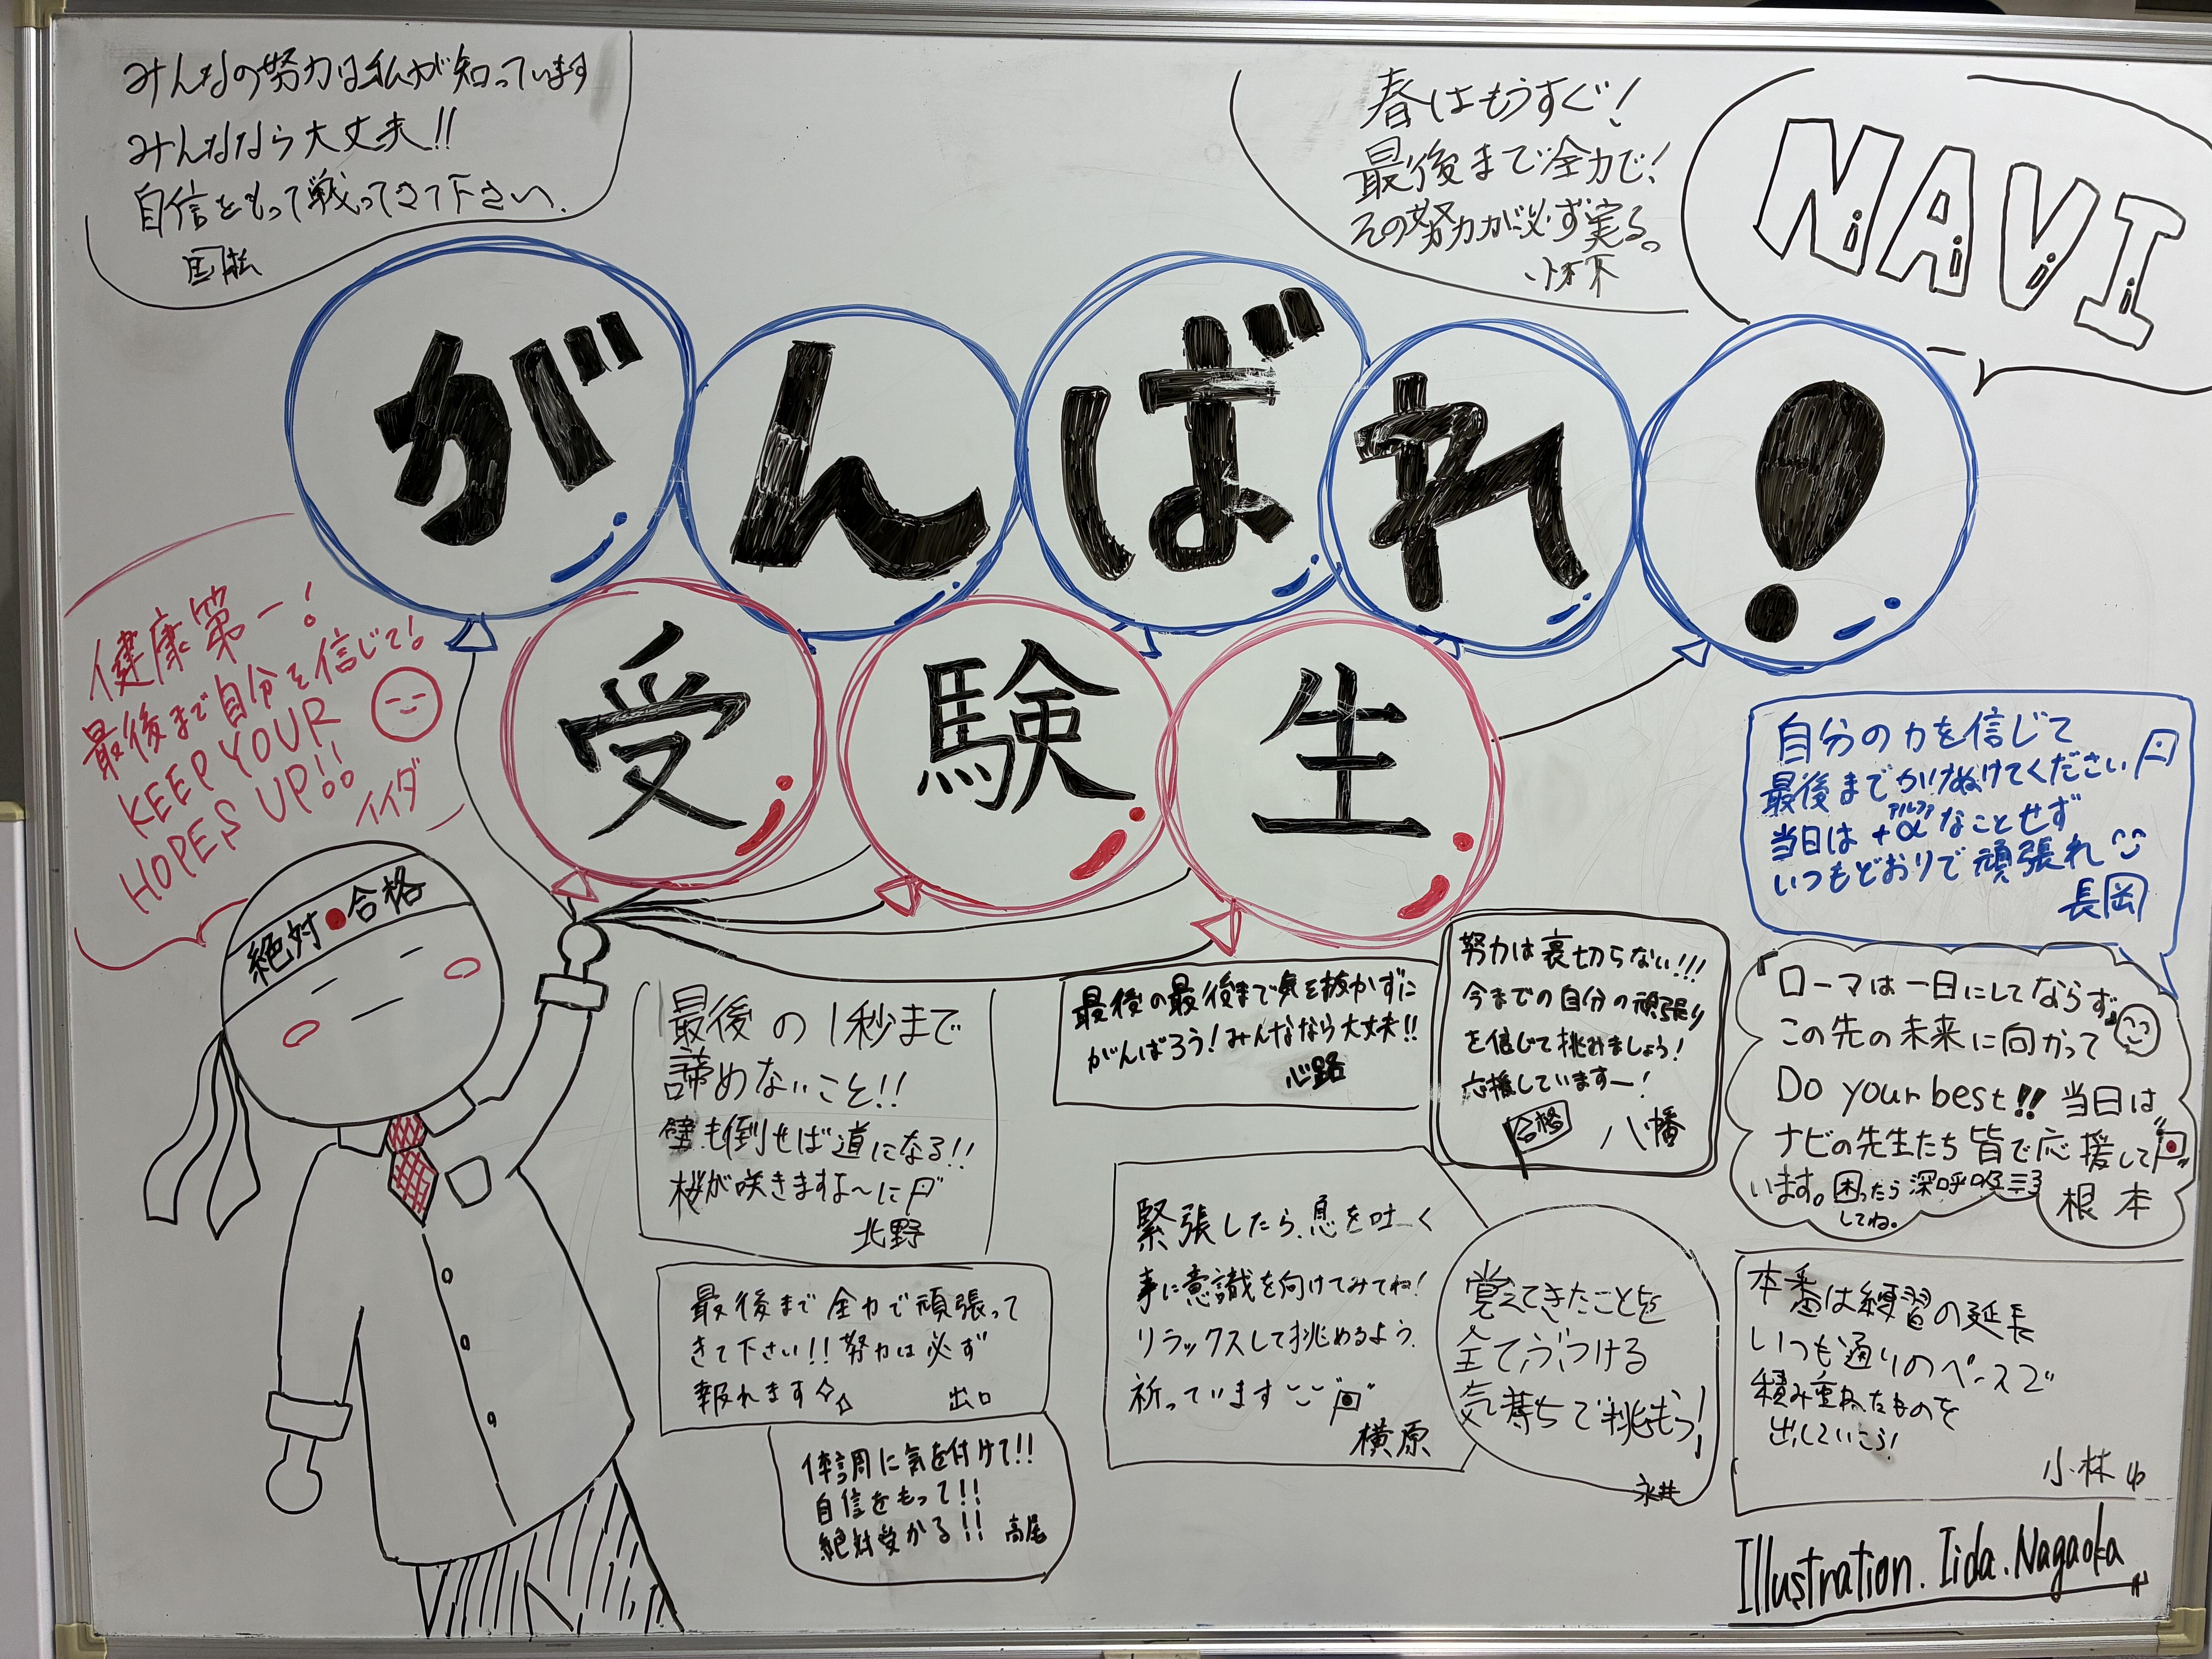 みんなの努力は私が知っています
みんななら大丈夫!!
自信をもって戦ってきて下さい.
国松
春はもうすぐ!
最後まで全力で!
その努力が必ず実る。
小木下
NAVI
がんばれ!
受験生
健康第一!
最後まで自分を信じて!
KEEP YOUR
HOPES UP!!
イイダ
絶対●合格
自分の力を信じて
最後までかけぬけてください
アルファ
当日は+αなことせず
いつもどおりで頑張れ
長岡
最後の1秒まで
諦めないこと!!
壁も倒せば道になる!!
桜が咲きますよ〜に
北野
最後の最後まで気を抜かずに
がんばろう!みんななら大丈夫!!
心路
努力は裏切らない!!!
今までの自分の頑張り
を信じて挑みましょう!
応援していますー!
合格
八幡
『ローマは一日にしてならず』
この先の未来に向かって
Do your best!! 当日は
ナビの先生たち皆で応援して
います。困ったら深呼吸
してね。
根本
最後まで全力で頑張って
きて下さい!!努力は必ず
報れます
出口
緊張したら、息を吐く
事に意識を向けてみてね!
リラックスして挑めるよう、
祈っています
横原
覚えてきたことを
全てぶつける
気持ちで挑もう!
永井
本番は練習の延長
いつも通りのペースで
積み重ねたものを
出していこう!
小林ゆ
体調に気を付けて!!
自信をもって!!
絶対受かる!!
高尾
Illustration. Iida. Nagaoka